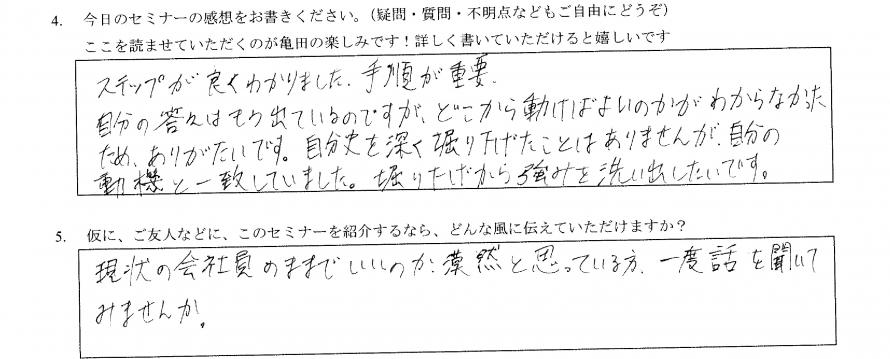 4. 今日のセミナーの感想をお書きください。（疑問・質問・不明点などもご自由にどうぞ）
ここを読ませていただくのが亀田の楽しみです！詳しく書いていただけると嬉しいです
ステップが良くわかりました。手順が重要。
自分の答えはもう出ているのですが、どこから動けばよいのかがわからなかった
ため、ありがたいです。自分史を深く掘り下げたことはありませんが、自分の
動機と一致していました。掘り下げから強みを洗い出したいです。
5. 仮に、ご友人などに、このセミナーを紹介するなら、どんな風に伝えていただけますか？
現状の会社員のままでいいのか漠然と思っている方、一度話を聞いて
みませんか。